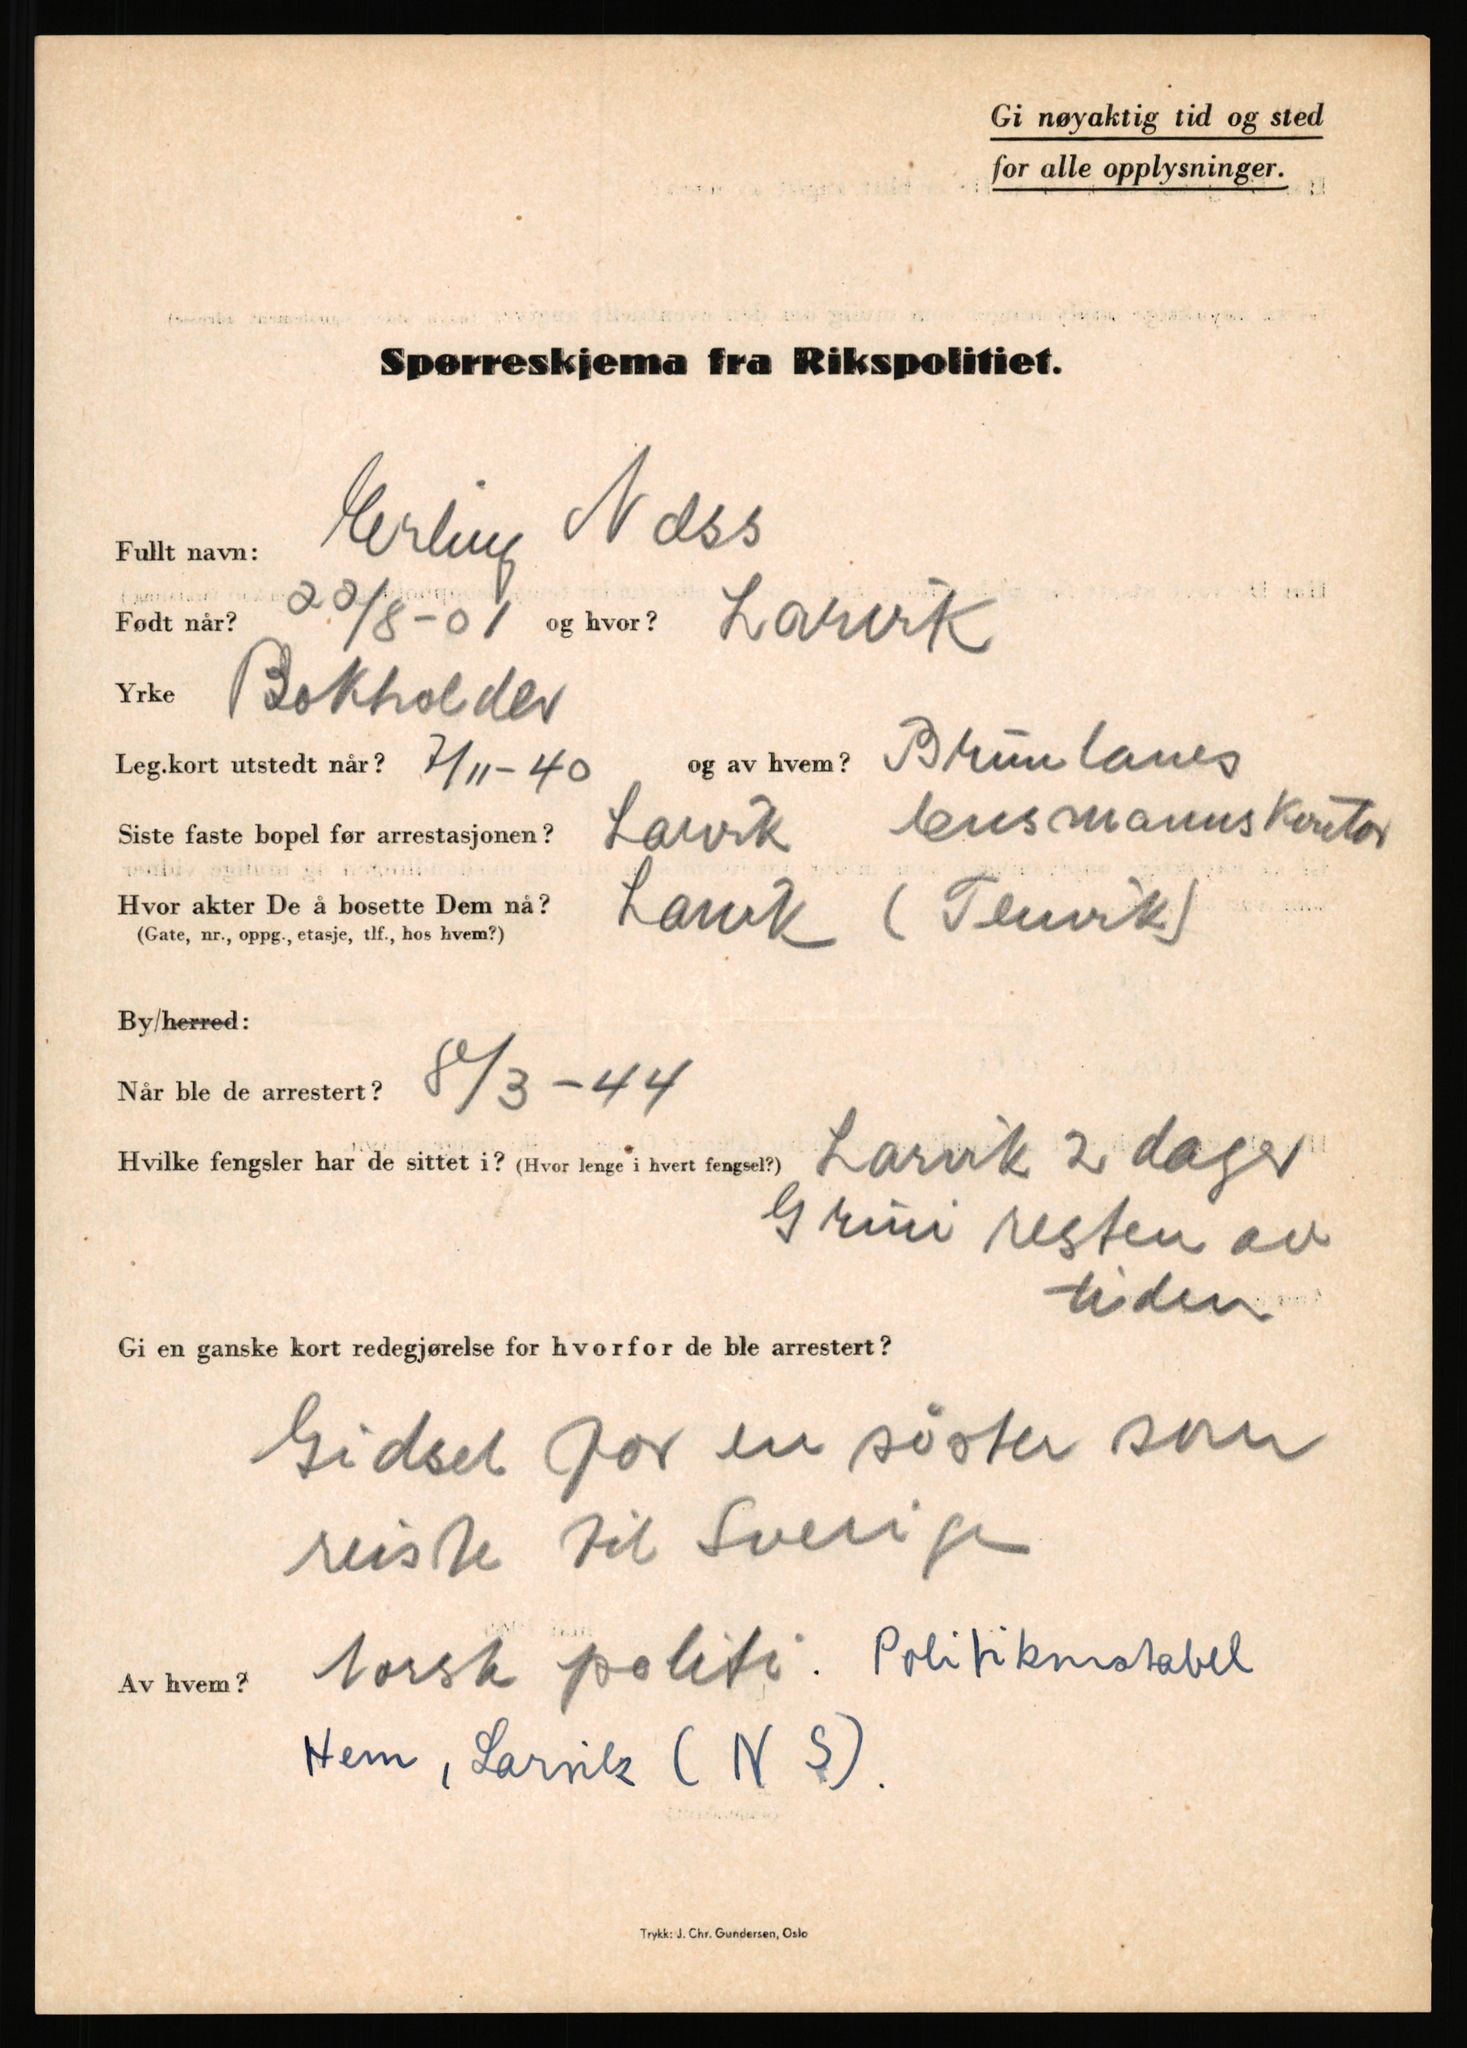 Gi nøyaktig tid og sted
for alle opplysninger.
Spørreskjema fra Rikspolitiet.
Fullt navn: Erling Næss
Født når? 22/8-01 og hvor? Larvik
Yrke Bokholder
Leg.kort utstedt når? 7/11-40 og av hvem? Brunlanes
Siste faste bopel før arrestasjonen? Larvik lensmannskontor
Hvor akter De å bosette Dem nå? Larvik (Tenvik)
(Gate, nr., oppg., etasje, tlf., hos hvem?)
By/herred:
Når ble de arrestert? 8/3-44
Hvilke fengsler har de sittet i? (Hvor lenge i hvert fengsel?) Larvik 2 dager
Grini resten av
tiden
Gi en ganske kort redegjørelse for hvorfor de ble arrestert?
Gidsel for en söster som
reiste til Sverige
Av hvem? Norsk politi. Politikonstabel
Hem, Larvik (NS).
Trykk: J. Chr. Gundersen, Oslo